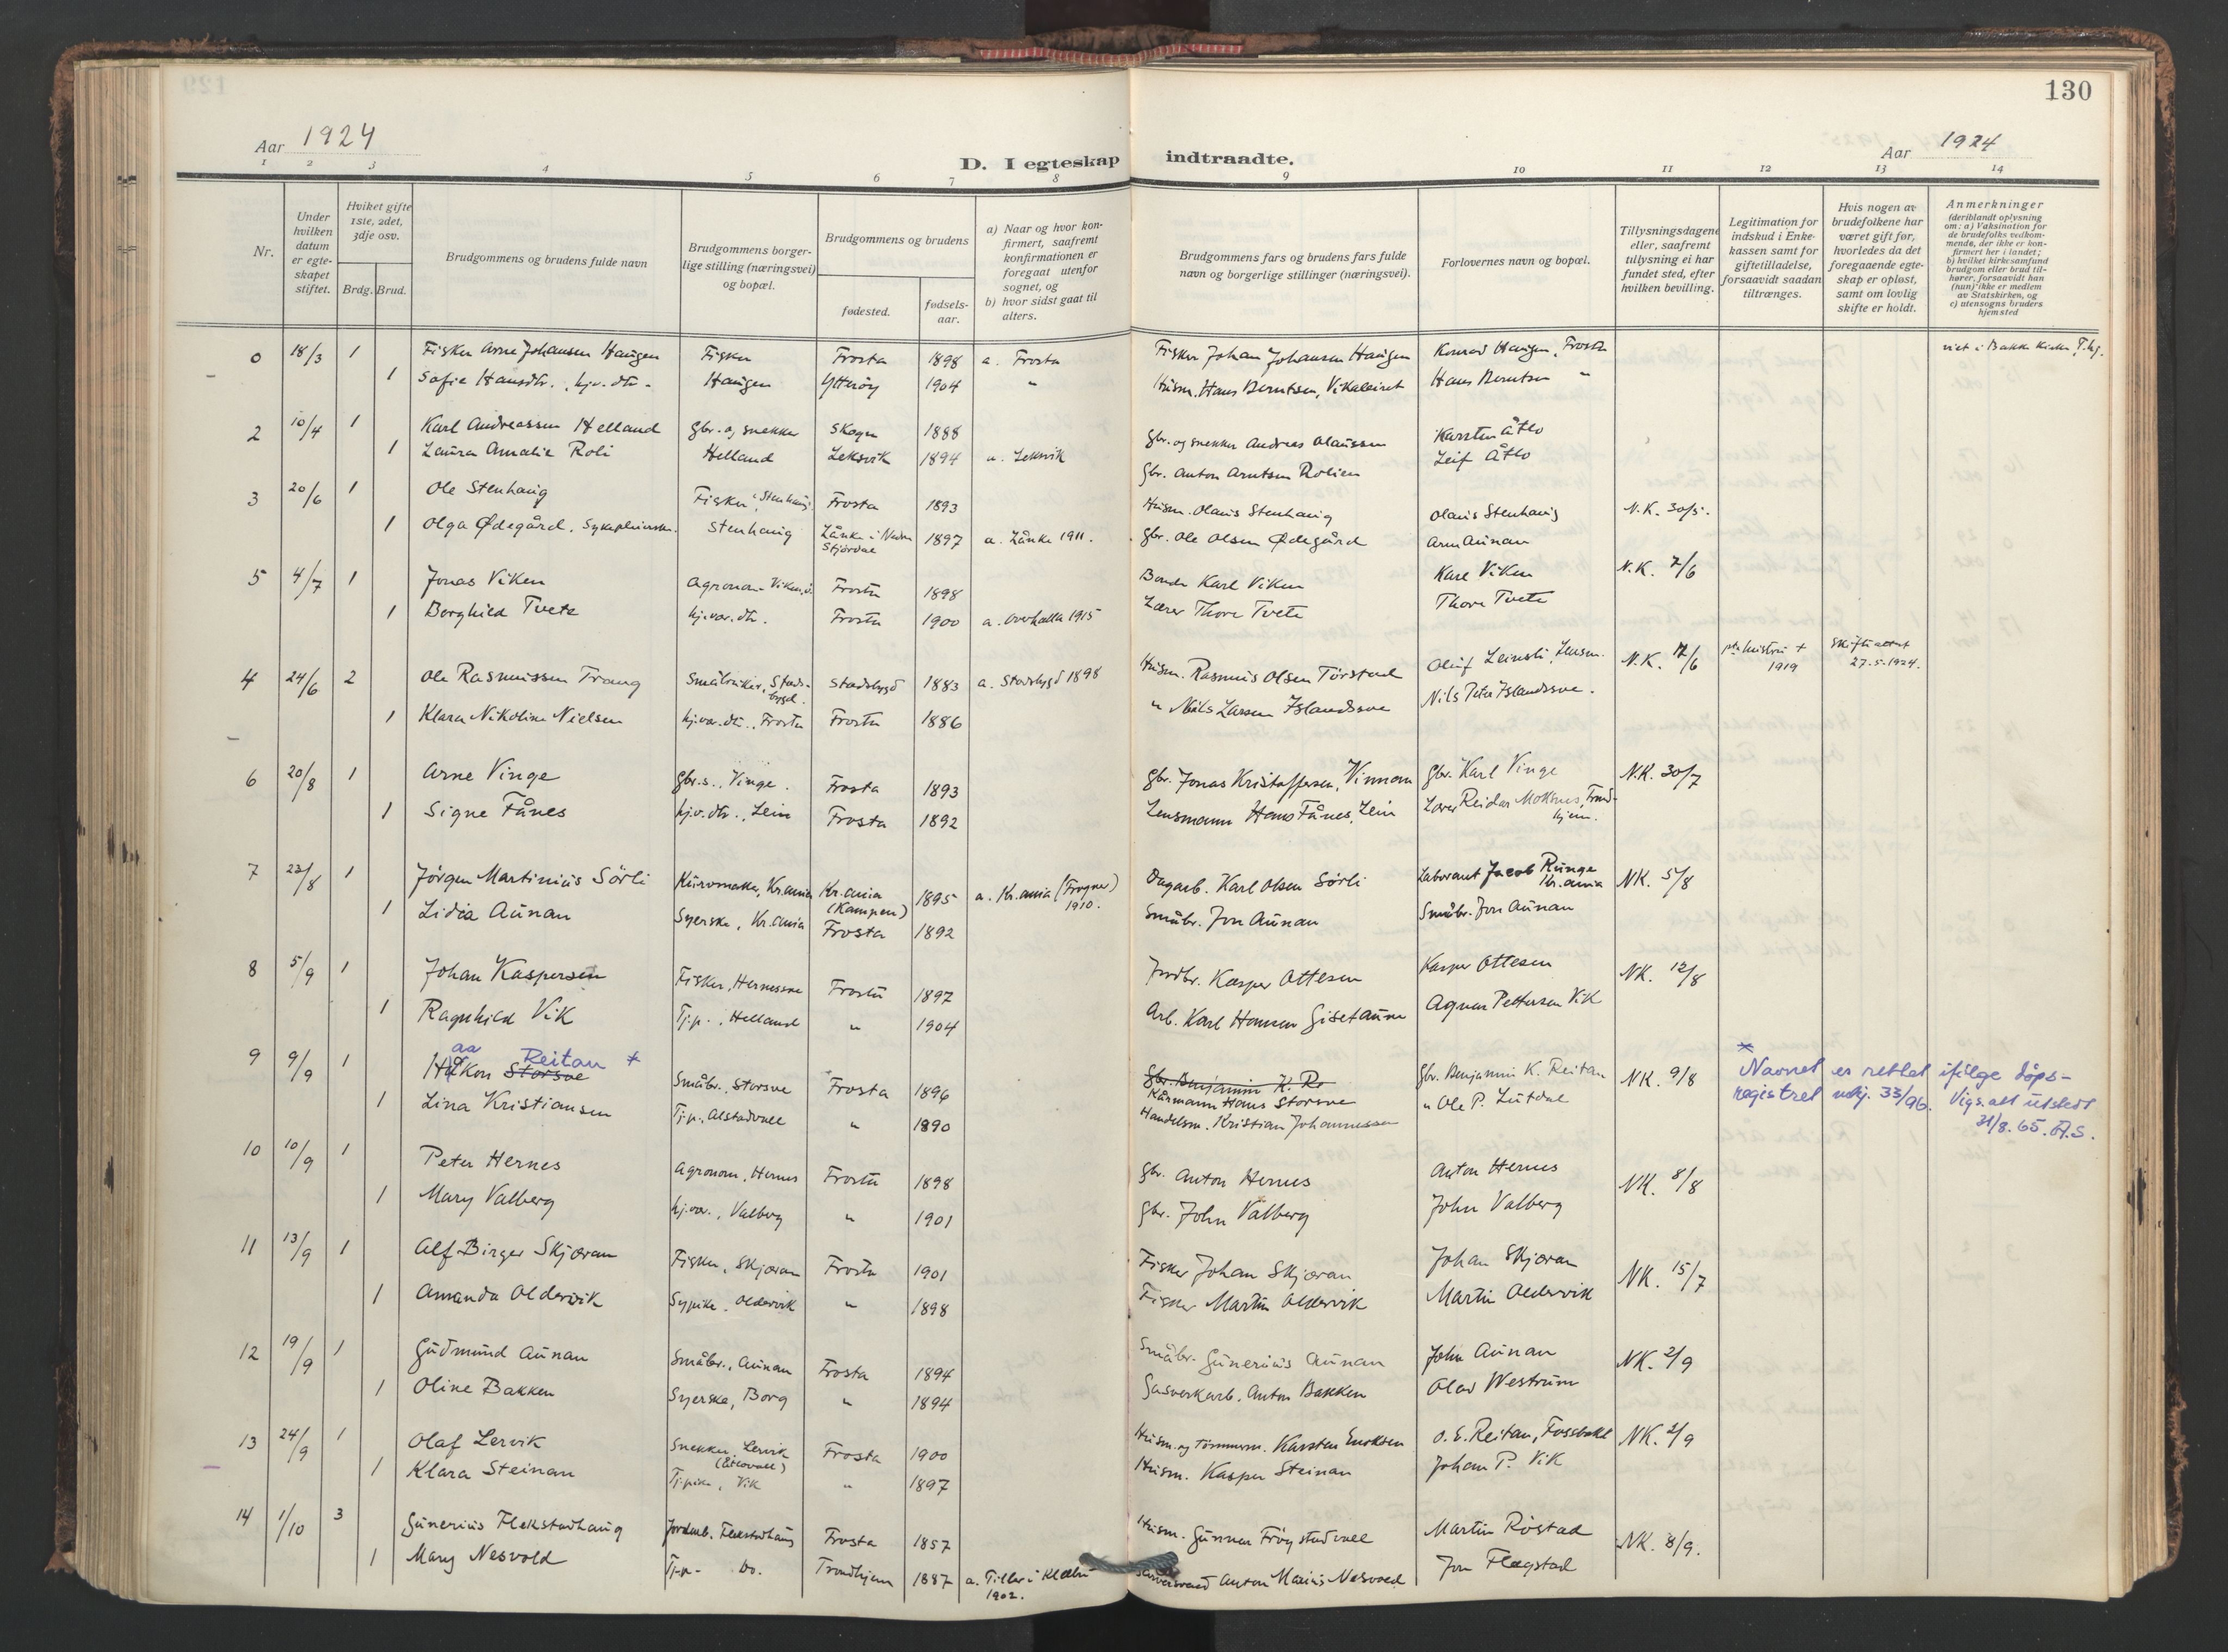 130
Aar 1924
D. I egteskap indtraadte.
Aar 1924
1 2 3 4 5 6 7 8 9 10 11 12 13 14
Nr.
Under hvilken datum er egteskapet stiftet.
Hviket gifte 1ste, 2det, 3dje osv.
Brdg. Brud.
Brudgommens og brudens fulde navn
Brudgommens borgerlige stilling (næringsvei) og bopæl.
Brudgommens og brudens
fødested.
fødselsaar.
a) Naar og hvor konfirmert, saafremt konfirmationen er foregaat utenfor sognet, og
b) hvor sidst gaat til alters.
Brudgommens fars og brudens fars fulde navn og borgerlige stillinger (næringsvei).
Forlovernes navn og bopæl.
Tillysningsdagene eller, saafremt tillysning ei har fundet sted, efter hvilken bevilling.
Legitimation for indskud i Enkekassen samt for giftetilladelse, forsaavidt saadan tiltrænges.
Hvis nogen av brudefolkene har været gift før, hvorledes da det foregaaende egteskap er opløst, samt om lovlig skifte er holdt.
Anmerkninger (deriblandt oplysning om: a) Vaksination for de brudefolks vedkommende, der ikke er konfirmert her i landet; b) hvilket kirkesamfund brudgom eller brud tilhører, forsaavidt han (hun) ikke er medlem av Statskirken, og c) utensogns bruders hjemsted
0 18/3 1 Fisker Arne Johansen Haugen Fisker Frosta 1898 a. Frosta Fisker Johan Johansen Haugen Konrad Haugen, Frosta viet i Bakke Kirke, T.hj.
1 Sofie Hansdtr., hj.v.dtr. Haugen Ytterøy 1904 " Husm. Hans Berntsen, Vikaleiret Hans Berntsen "
2 10/4 1 Karl Andreassen Helland Gbr. og snekker Skogn 1888 Gbr. og snekker Andreas Olaussen Karsten Åtlo
1 Laura Amalie Roli Helland Leksvik 1894 a. Leksvik Gbr. Anton Arntsen Rolien Leif Åtlo
3 20/6 1 Ole Stenhaug Fisker, Stenhaug Frosta 1893 Husm. Olaus Stenhaug Olaus Stenhaug N.K. 30/5.
1 Olga Ødegård. Sykepleierske. Stenhaug Lånke i Nedre Stjørdal 1897 a. Lånke 1911. Gbr. Ole Olsen Ødegård Arne Aunan
5 4/7 1 Jonas Viken Agronom Viken Frosta 1898 Bonde Karl Viken Karl Viken N.K. 7/6
1 Borghild Tvete hj.vær.dtr. Frosta 1900 a. Overhalla 1915 Lærer Thore Tvete Thore Tvete
4 24/6 2 Ole Rasmussen Trang Småbruker, Stadsbygd. Stadsbygd 1883 a. Stadsbygd 1898 Husm. Rasmus Olsen Tørstad Oluf Leinsli, Lensm. N.K. 12/6 1919 Skifteattest 27.5.1924.
1 Klara Nikoline Nielsen hj.vær.dtr., Frosta Frosta 1886 " Nils Larsen Islandssve Nils Peter Islandssve.
6 20/8 1 Arne Vinge Gbr.s., Vinge. Frosta 1893 Gbr. Jonas Kristoffersen, Vinnan Gbr. Karl Vinge N.K. 30/7
1 Signe Fånes hj.v.dtr., Lein Frosta 1892 Lensmann Hans Fånes, Lein Lærer Reidar Moksnes, Trondhjem.
7 23/8 1 Jørgen Martinius Sørli Kurvmaker, Kr.ania Kr.ania (Kampen) 1895 a. Kr.ania (Frogner) 1910. Dagarb. Karl Olsen Sørli Laborant Jacob Runge Kr.ania NK. 5/8
1 Lidia Aunan Syerske, Kr.ania Frosta 1892 Småbr. Jon Aunan Småbr. Jon Aunan
8 5/9 1 Johan Kaspersen Fisker, Hernessve Frosta 1897 Jordbr. Kasper Ottesen Kasper Ottesen NK. 12/8
1 Ragnhild Vik Tj.p., Helland " 1904 Arb. Karl Hansen Gisetaune Agnar Pettersen Vik
9 9/9 1 Haakon Storsve Reitan + Småbr., Storsve Frosta 1896 Gbr. Benjamin K. Re Kårmann Hans Storsve Gbr. Benjamin K. Reitan NK. 9/8
1 Lina Kristiansen Tj.p. Alstadvall " 1890 Handelsm. Kristian Johannessen " Ole P. Lutdal
* Navnet er rettet ifølge dåps-
registret utskj. 33/96. Vigs.att utstedt
31/8.65. A.S.
10 10/9 1 Peter Hernes Agronom, Hernes Frosta 1898 Gbr. Anton Hernes Anton Hernes NK. 8/8
1 Mary Valberg hj.vær., Valberg " 1901 Gbr. John Valberg John Valberg
11 13/9 1 Alf Birger Skjæran Fisker, Skjæran Frosta 1901 Fisker Johan Skjæran Johan Skjæran NK. 15/7
1 Amanda Oldervik Sypike, Oldervik " 1898 Fisker Martin Oldervik Martin Oldervik
12 19/9 1 Gudmund Aunan Småbr., Aunan Frosta 1894 Småbr. Gunerius Aunan John Aunan NK. 2/9
1 Oline Bakken Syerske, Borg " 1894 Gasverkarb. Anton Bakken Olav Westrum
13 24/9 1 Olaf Lervik Snekker, Lervik Frosta 1900 Husm. og tømmerm. Karsten Eriksen O. E. Reitan, Fossbakk NK. 2/9
1 Klara Steinan Tj.pike, Vik " 1897 Husm. Kasper Steinan Johan P. Vik
14 1/10 3 Gunerius Flekstadhaug Jordarb. Flekstadhaug Frosta 1857 Husm. Gunnar Frøystadvall Martin Røstad NK. 8/9.
1 Mary Nesvold Tj.p. Do. Trondhjem 1887 a. Tiller i Klæbu 1902. Anton Marius Nesvold Jon Flagstad